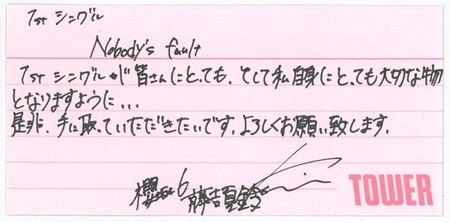 1st シングル
Nobody's fault
1st シングルが皆さんにとっても、そして私自身にとっても大切な物
となりますように...
是非、手に取っていただきたいです。よろしくお願い致します。
櫻坂46 藤吉夏鈴
TOWER